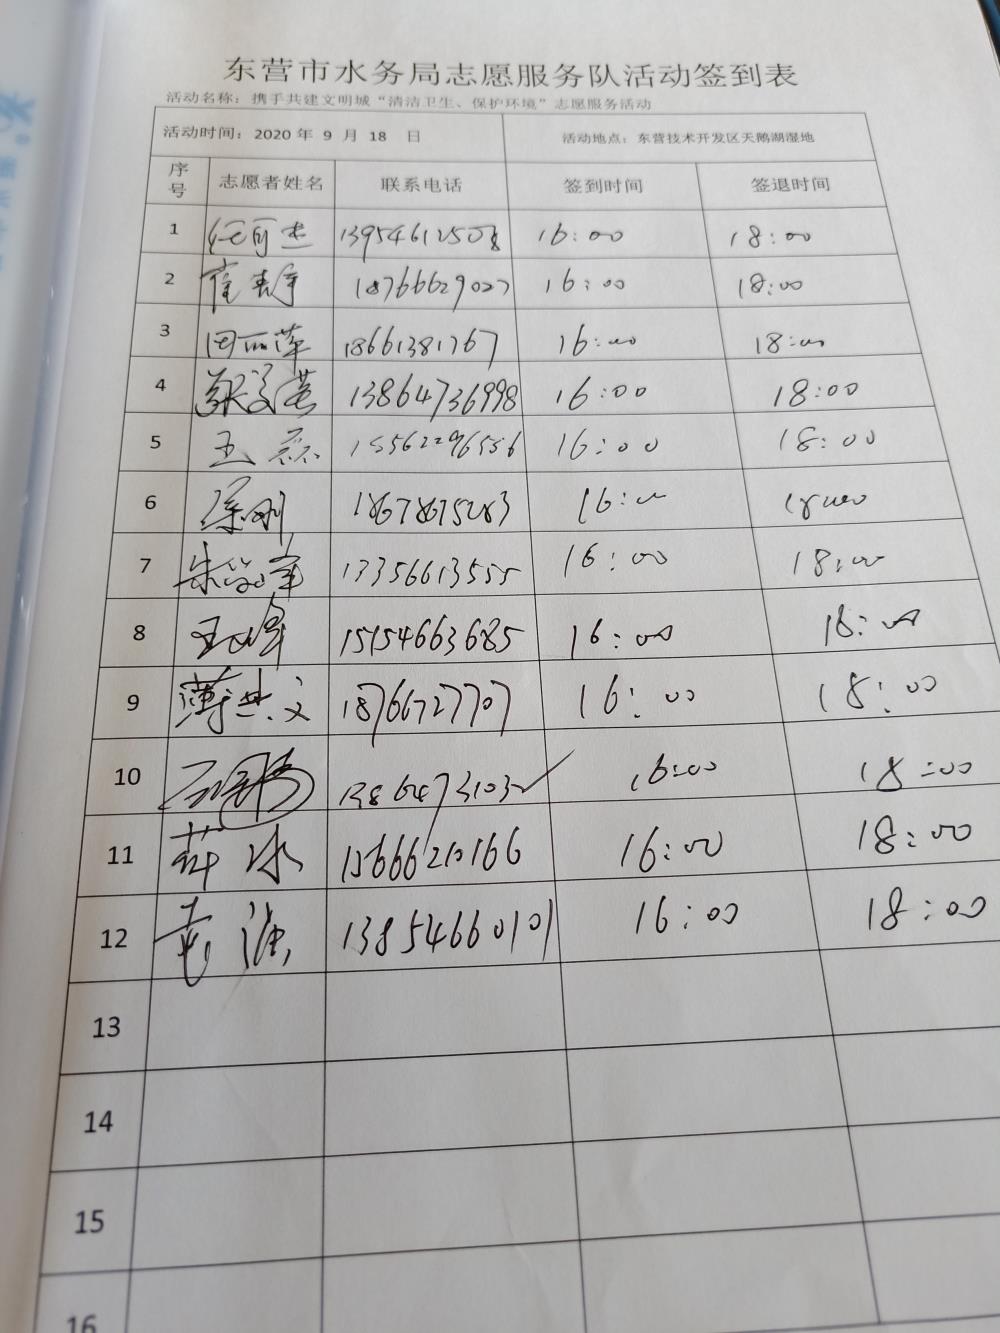 东营市水务局志愿服务队活动签到表
活动名称：携手共建文明城“清洁卫生、保护环境”志愿服务活动
活动时间：2020 年 9 月 18 日 活动地点：东营技术开发区天鹅湖湿地
序号 志愿者姓名 联系电话 签到时间 签退时间
1 13954612508 16:00 18:00
2 18766629027 16:00 18:00
3 田丽萍 18661381767 16:00 18:00
4 13864736998 16:00 18:00
5 王磊 15562296556 16:00 18:00
6 徐刚 18678675283 16:00 18:00
7 13356613555 16:00 18:00
8 15154663685 16:00 18:00
9 薄其文 18766727707 16:00 18:00
10 16:00 18:00
11 薛冰 13666210166 16:00 18:00
12 13854660101 16:00 18:00
13
14
15
16